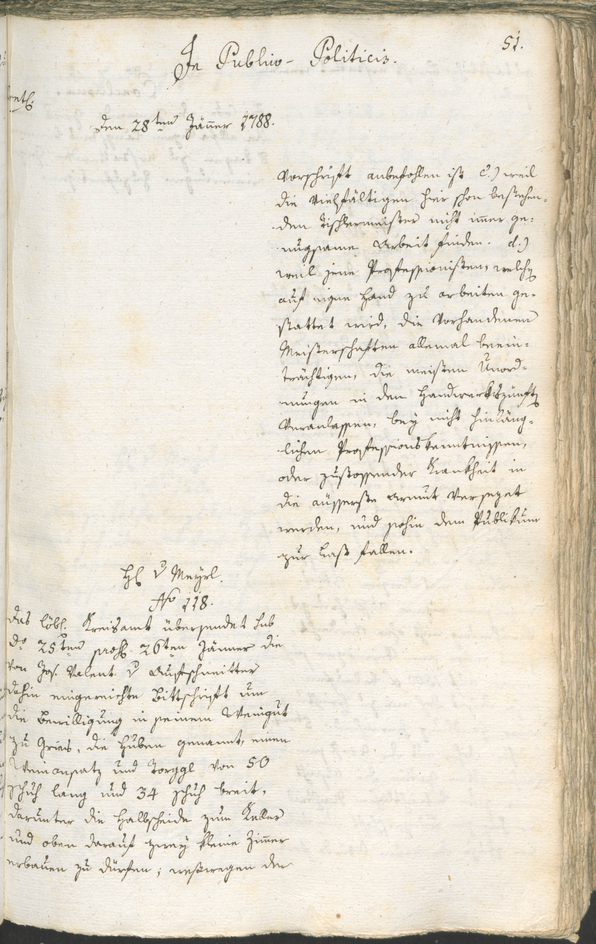 51.
In Publico-Politicis.
den 28ten Jäner 1788.
Vorschrift anbefohlen ist c.) weil
die Vielfältigen hier schon bestehen-
den Tischlermeister nicht imer ge-
nugsame Arbeit finden. d.)
weil jene Professionisten, welche
auf eigne Hand zu arbeiten ge-
stattet wird, die vorhandenen
Meisterschaften allemal beein-
trächtigen, die meisten Unord-
nungen in den Handwerkszünften
Veranlassen, bey nicht hinläng-
lichen Professionskenntnissen,
oder zustossender Krankheit in
die äusserste Armut versezet
werden, und sohin dem Publikum
zur Last fallen.
H v Mayrl.
No 118.
das löbl. Kreisamt übersendet sub
do 25ten prs. 26ten Jänner die
von Jos. Valent. v Aufschneitter
dahin eingereichte Bittschrift um
die Bewilligung in seinem Weingut
zu Gries, die Huben genant, einen
Weinansatz und Torggl von 50
Schuh lang und 34 Schuh breit,
darunter die Halbscheide zum Keller
und oben darauf zwey kleine Zimmer
erbauen zu dürfen; weßwegen der